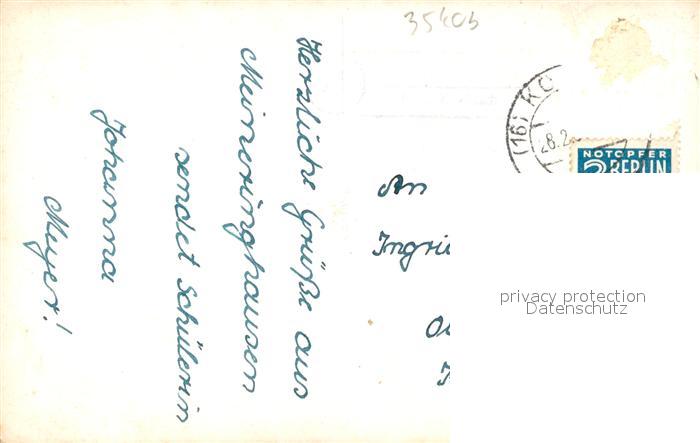 35403
Herzliche Grüße aus
Meineringhausen
sendet Schülerin
Johanna
Meyer!
(16) KO
28.2.
NOTOPFER
2 BERLIN
An
Ingri
privacy protection
Datenschutz